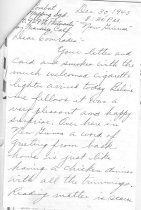 Dec. 30, 1942
New Guinea
Dear Comrades:
Your letter and
card and smokes with the
much welcomed cigarette
lighter arrived today. Believe
me fellows it was a
very pleasant and happy
surprise. Over here in
New Guinea a word of
greeting from back
home is just like
having a chicken dinner
with all the trimmings.
Reading matter is scarce